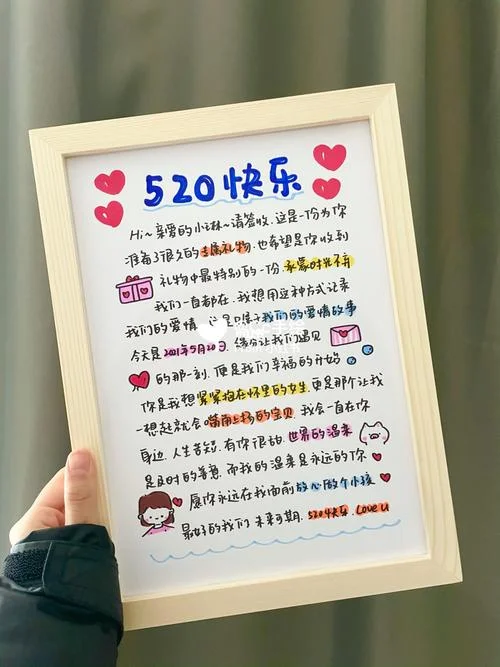 520快乐
Hi~亲爱的小琳~请签收.这是一份为你
准备了很久的专属礼物.也希望是你收到
礼物中最特别的一份.承蒙时光不弃
我们一直都在.我想用这种方式记录
我们的爱情.这是只属于我们的爱情故事
今天是2021年5月20日.缘分让我们遇见
的那一刻.便是我们幸福的开始
你是我想紧紧抱在怀里的女生.更是那个让我
一想起就会嘴角上扬的宝贝.我会一直在你
身边.人生苦短.有你很甜.世界的温柔
是及时的善意.而我的温柔是永远的你
愿你永远在我面前放心的个小孩
最好的我们.未来可期.520快乐.Love U